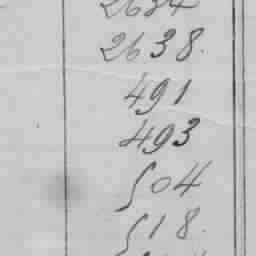 2634
2638.
491
493
504
518.